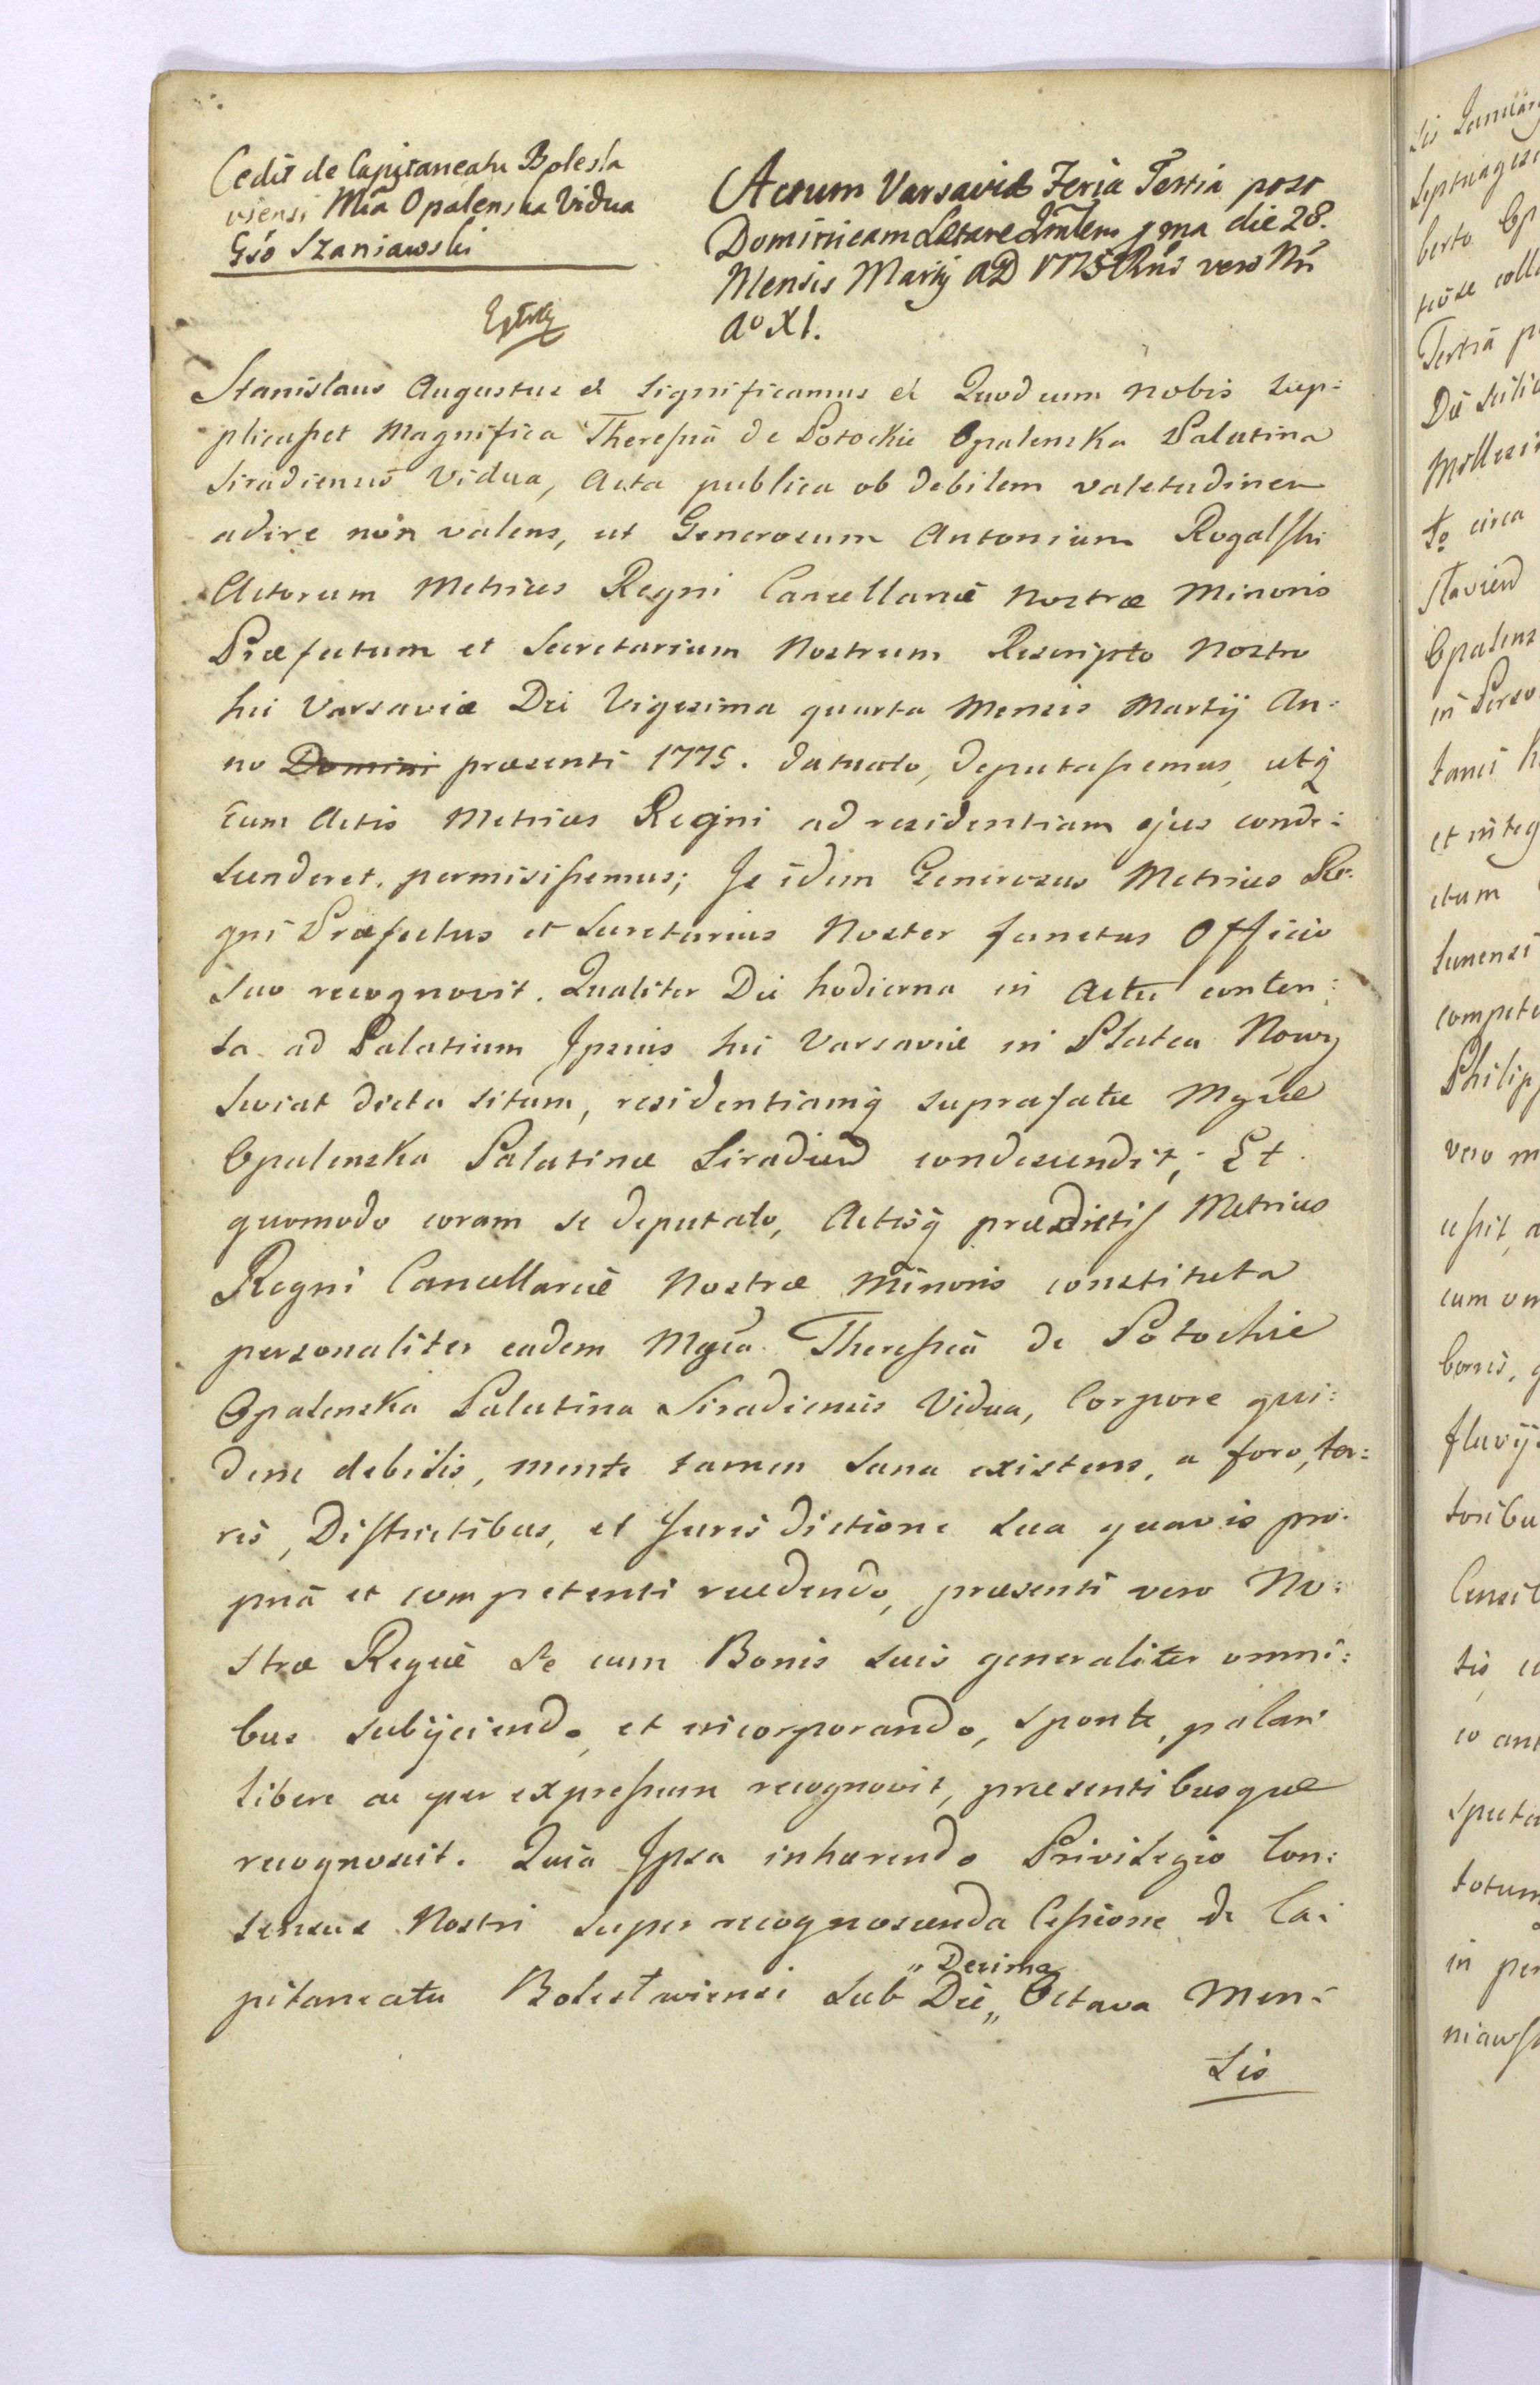 Cedit de Capitaneatu Bolesla
viensi Mĩa Opalenska Vidua
Gšo Szaniawski
Extrã
Actum Varsaviæ Feria Tertia post
Dominicam Lætare Qũalem gma die 28.
Mensis Martij AD 1775 Rñi vero Nri
Aº XI.
Stanislaus Augustus et Significamus et Quod cum nobis sup:
plicasset Magnifica Theressia de Potockie Opalenska Palatina
Siradiensis Vidua, Acta publica ob debilem valetudinem
adire non valens, ut Generosum Antonium Rogalski
Actorum Metrices Regni Cancellariæ Nostræ Minoris
Præfectum et Secretarium Nostrum Rescripto Nostro
hic Varsaviæ Die Vigesima quarta Mensis Martij An:
no Domini præsenti 1775. datuato, deputassemus, utq
Eum Actis Metrices Regni ad residentiam ejus conde:
scenderet, permisissemus; Is idem Generosus Metrices Re:
gni Præfectus et Secretarius Noster functus Officio
suo recognovit. Qualiter Die hodierna in Actu conten:
ta ad Palatium Ipsius hic Varsaviæ in Platea Nowy
Swiat dicta situm, residentiamq suprafatæ Mgcæ
Opalenska Palatinæ Siradien condescendit; Et
quomodo coram se deputato, Actisq prædictis Metrices
Regni Cancellariæ Nostræ Minoris constituta
personaliter eadem Mgca Theressia de Potockie
Opalenska Palatina Siradiensis Vidua, Corpore qui:
dem debilis, mente tamen sana existens, a foro, ter:
ris, Districtibus, et Jurisdictione sua quavis pro:
pria et competenti recedendo, præsenti vero No:
stræ Regiæ Se cum Bonis suis generaliter omni:
bus subijciendo, et incorporando, sponte, palam
libere ac per expressum recognovit, præsentibusque
recognoscit. Quia Ipsa inhærendo Privilegio Con:
sensus Nostri super recognoscenda Cessione de Ca:
pitaneatu Bolesławiensi sub Die „ Decima „ Octava Men:
sis